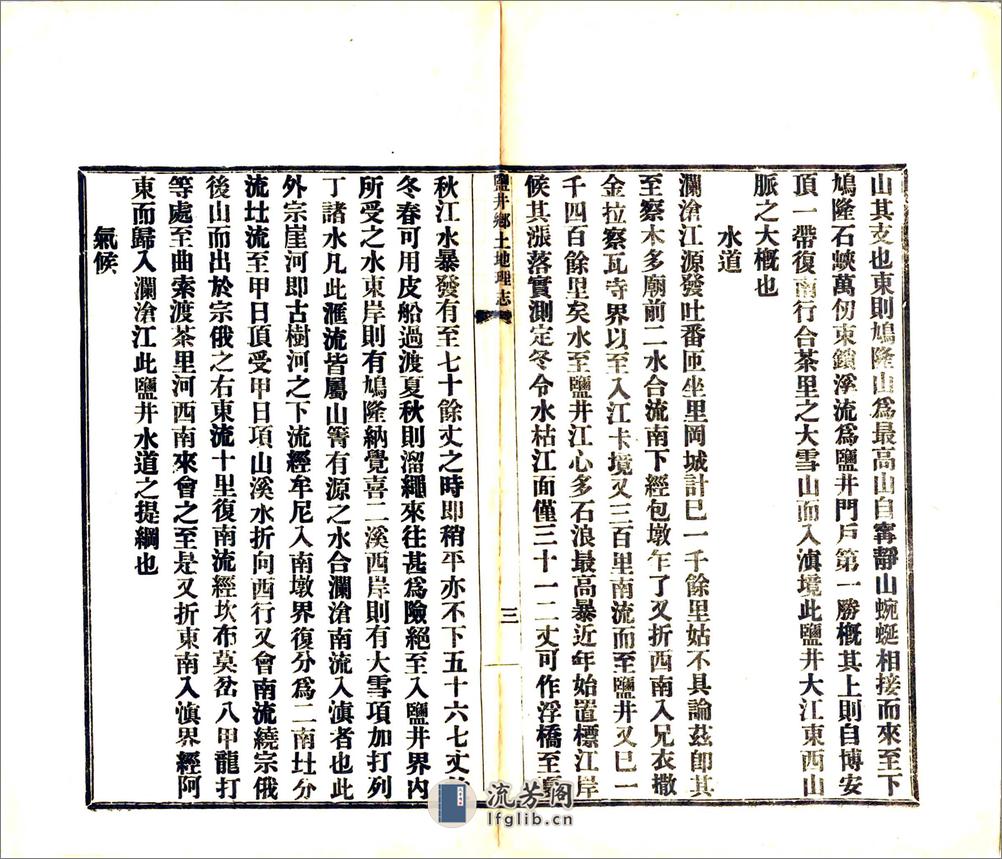 山其支也東則鳩隆山爲最高山自寗靜山蜿蜒相接而來至下
鳩隆石峽萬仞束鎖溪流爲鹽井門戶第一勝槪其上則自博安
頂一帶復南行合茶里之大雪山而入滇境此鹽井大江東西山
脈之大槪也
水道
瀾滄江源發吐番匝坐里岡城計已一千餘里姑不具論茲卽其
至察木多廟前二水合流南下經包墩乍了又折西南入兄衣撒
金拉察瓦寺界以至入江卡境又三百里南流而至鹽井又已一
千四百餘里矣水至鹽井江心多石浪最高暴近年始置標江岸
候其漲落實測定冬令水枯江面僅三十一二丈可作浮橋至
鹽井鄉土地理志
三
秋江水暴發有至七十餘丈之時即稍平亦不下五十六七丈
冬春可用皮船過渡夏秋則溜繩來往甚爲險絕至入鹽井界內
所受之水東岸則有鳩隆納覺喜二溪西岸則有大雪項加打列
丁諸水凡此滙流皆屬山箐有源之水合瀾滄南流入滇者也此
外宗崖河即古樹河之下流經牟尼入南墩界復分爲二南㘰分
流㘰流至甲日頂受甲日項山溪水折向西行又會南流繞宗俄
後山而出於宗俄之右東流十里復南流經坎布莫岔八甲龍打
等處至曲索渡茶里河西南來會之至是又折東南入滇界經阿
東而歸入瀾滄江此鹽井水道之提綱也
氣候
流芳閣
lfglib.cn